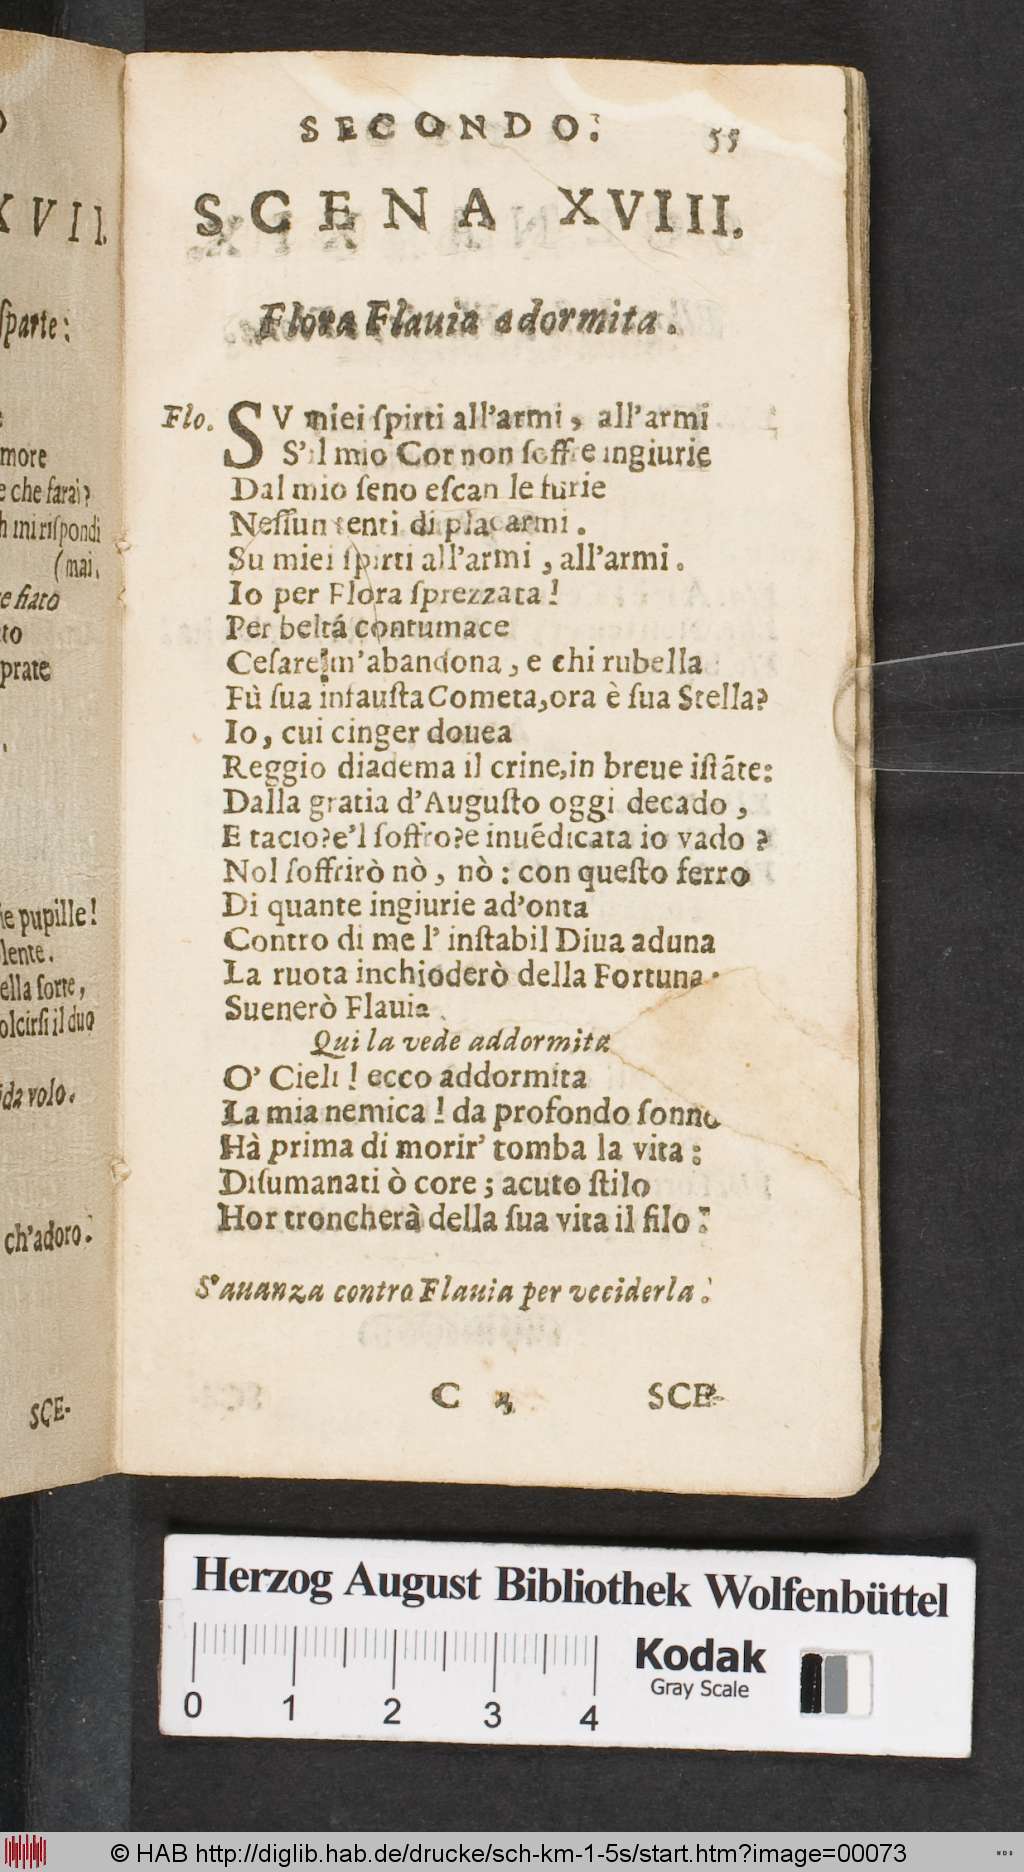 XVII.
sparte:
more
e che farai?
h mi rispondi
(mai.
re fiato
to
prate
ie pupille!
lente.
ella sorte,
olcirsi il duo
ida volo.
ch'adoro.
SCE-
SECONDO. 55
SCENA XVIII.
Flora Flauia adormita.
Flo. SV miei ſpirti all'armi, all'armi
S'il mio Cor non ſoffre ingiurie
Dal mio ſeno eſcan le furie
Neſſun tenti di placarmi.
Su miei ſpirti all'armi, all'armi.
Io per Flora ſprezzata!
Per beltá contumace
Ceſare m'abandona, e chi rubella
Fù ſua infauſta Cometa, ora è ſua Stella?
Io, cui cinger douea
Reggio diadema il crine, in breue iſtãte:
Dalla gratia d'Auguſto oggi decado,
E tacio? e'l ſoffro? e inuẽdicata io vado?
Nol ſoffrirò nò, nò: con queſto ferro
Di quante ingiurie ad'onta
Contro di me l' inſtabil Diua aduna
La ruota inchioderò della Fortuna.
Suenerò Flauia.
Qui la vede addormita
O' Cieli! ecco addormita
La mia nemica! da profondo ſonno
Hà prima di morir' tomba la vita:
Diſumanati ò core; acuto ſtilo
Hor troncherà della ſua vita il filo.
S'auanza contro Flauia per vcciderla.
C 4 SCE-
Herzog August Bibliothek Wolfenbüttel
Kodak
Gray Scale
0 1 2 3 4
© HAB http://diglib.hab.de/drucke/sch-km-1-5s/start.htm?image=00073